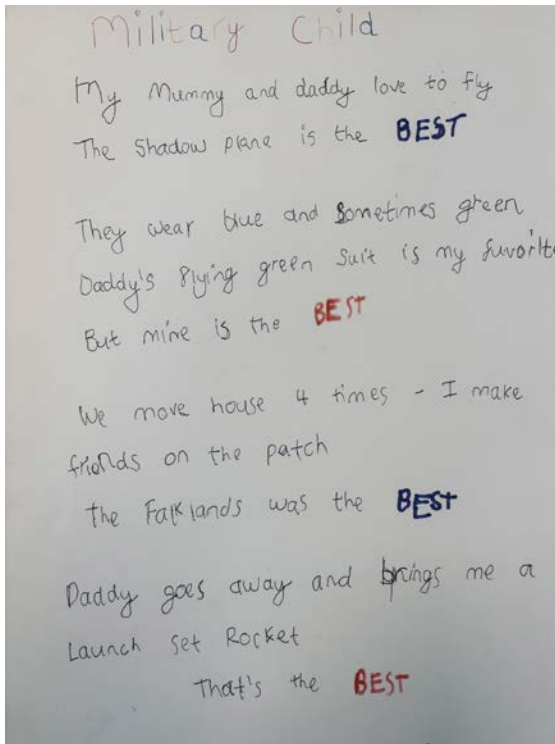 Military Child
My Mummy and daddy love to fly
The Shadow plane is the BEST
They wear blue and sometimes green
Daddy's flying green suit is my favorite
But mine is the BEST
We move house 4 times - I make
friends on the patch
the Falklands was the BEST
Daddy goes away and brings me a
Launch set Rocket
That's the BEST